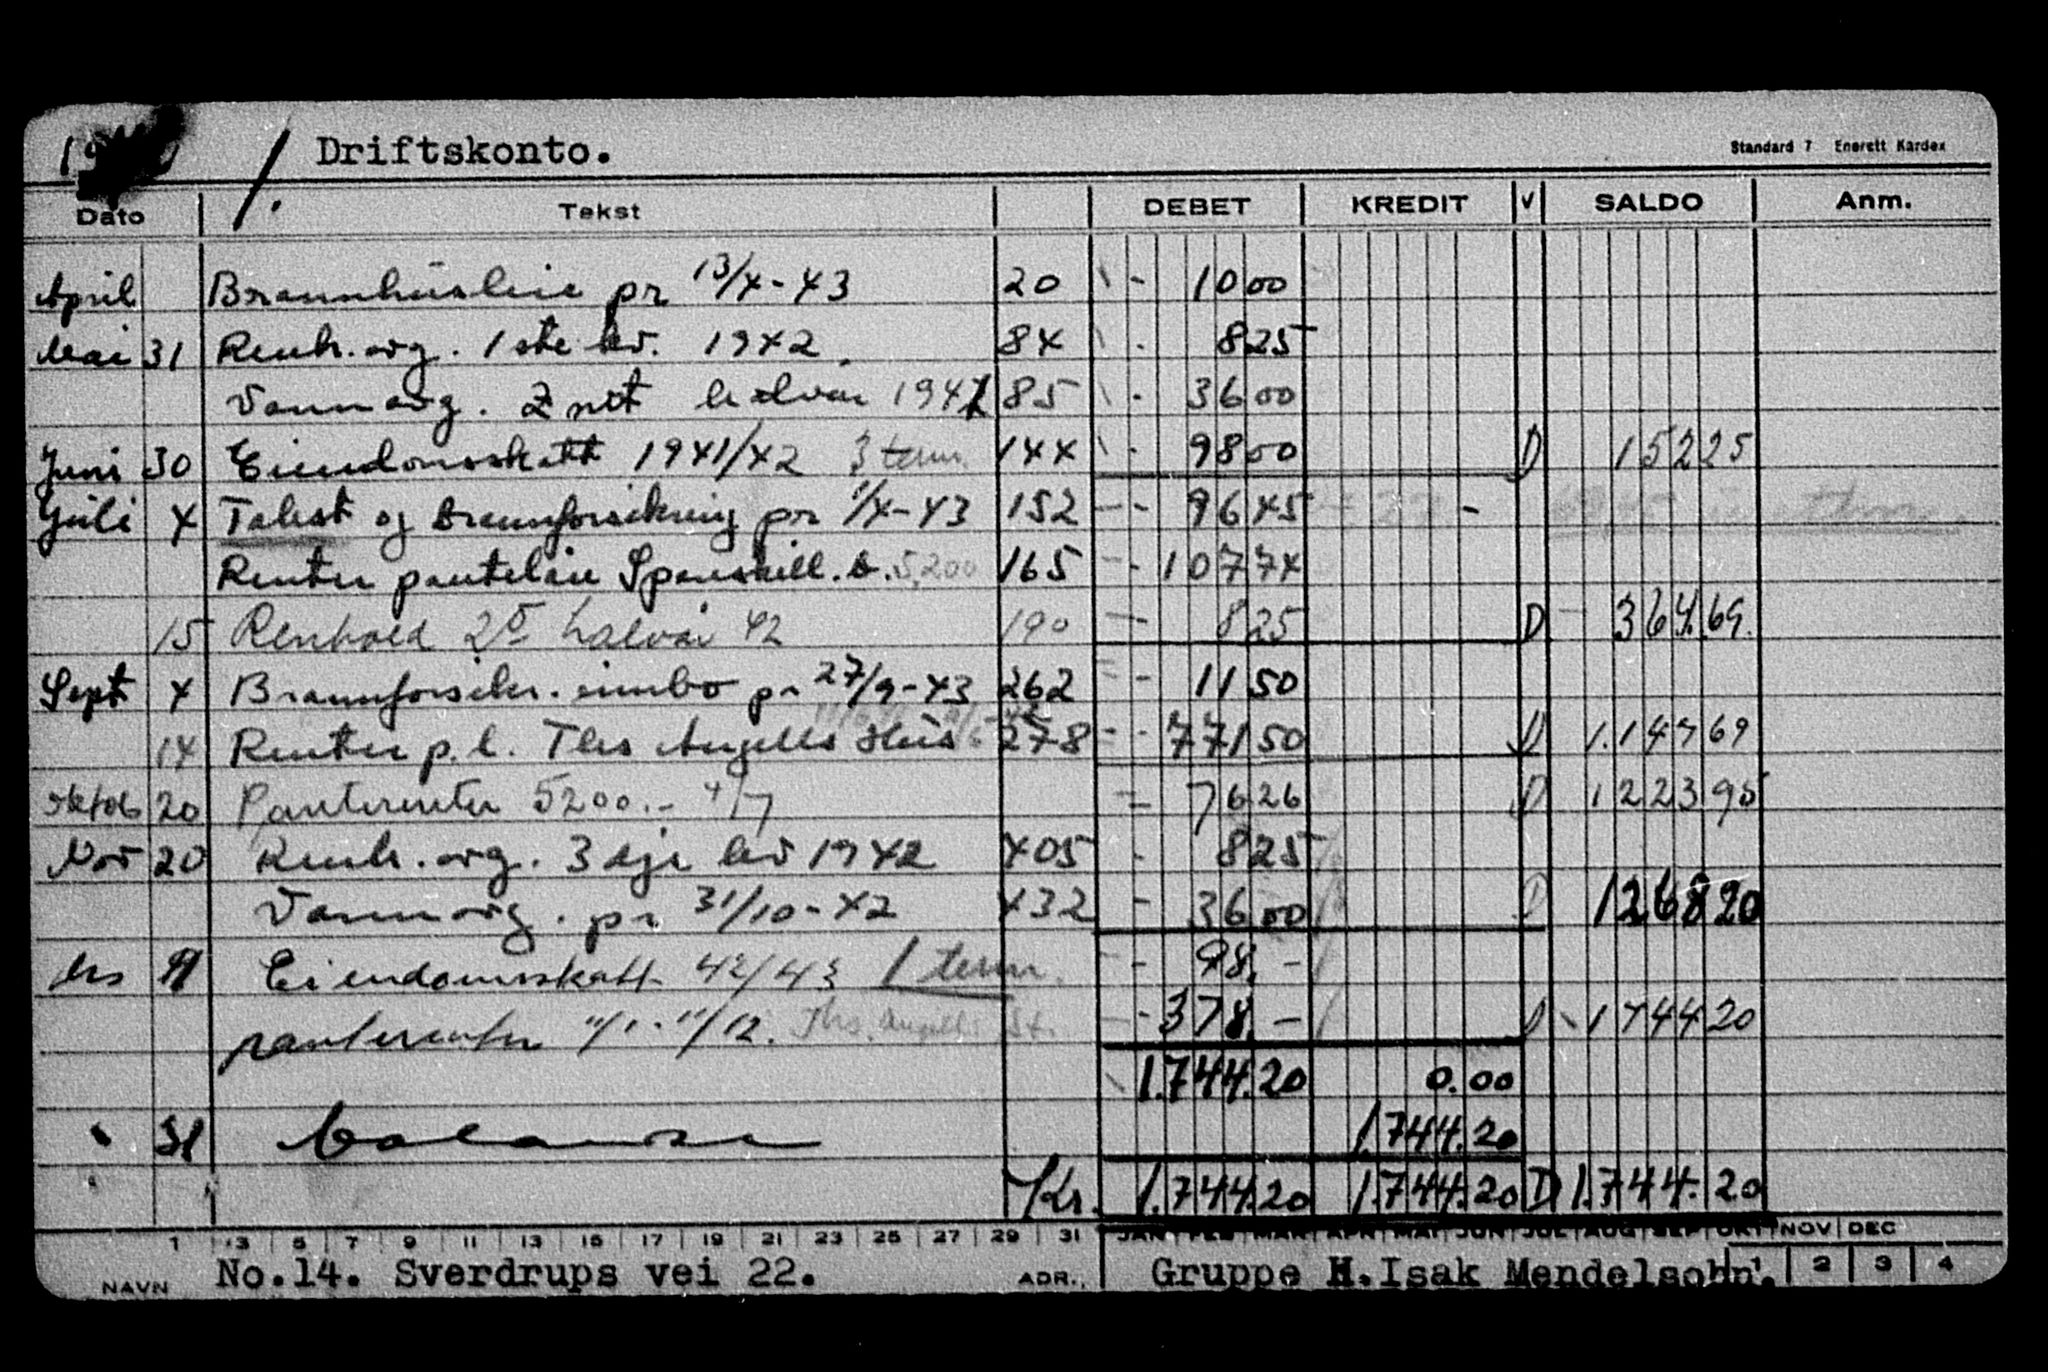 1. Driftskonto.
Standard 7 Enerett Kardex
Dato Tekst DEBET KREDIT V SALDO Anm.
April pr 13/4-43 20 - 10 00
Mai 31 Renh. avg. 1ste kv. 1942. 84 - 8 25
Vannavg. 2net halvår 1941 85 - 36 00
Juni 30 Eiendomsskatt 1941/42 3 term. 144 - 98 00 D 152 25
Juli 4 Tabst og brannforsikring pr 1/4-43 152 - 96 45
Renter pantelån Spareskill. b. 5,200 165 - 107 74
15 Renhold 2. halvår 42 190 - 8 25 D 364.69.
Sept 4 Brannforsikr. innbo pr 27/9-43 262 - 11 50
14 Renter p.l. Ths Angells Hus 278 - 771 50 D 1.147 69
Oktob 20 Panterenter 5200.- 4/7 - 76 26 D 1223 95
Nov 20 Renh. avg. 3dje kv 1942 405 - 8 25
Vannavg. pr 31/10-42 432 - 36 00 D 1268 20
Des Eiendomsskatt 42/43 1 term. - 98. -
panterenter 11/1-11/12. Ths. Angells St. - 378. - D 1744 20
1.744.20 0.00
" 31 balanse 1.744.20
Kr. 1.744.20 1.744.20 D 1.744.20
1 3 5 7 9 11 13 15 17 19 21 23 25 27 29 31 JAN FEB MAR APR MAI JUN JUL AUG SEP OKT NOV DEC
NAVN No.14. Sverdrups vei 22. ADR. Gruppe H. Isak Mendelsohn. 1 2 3 4